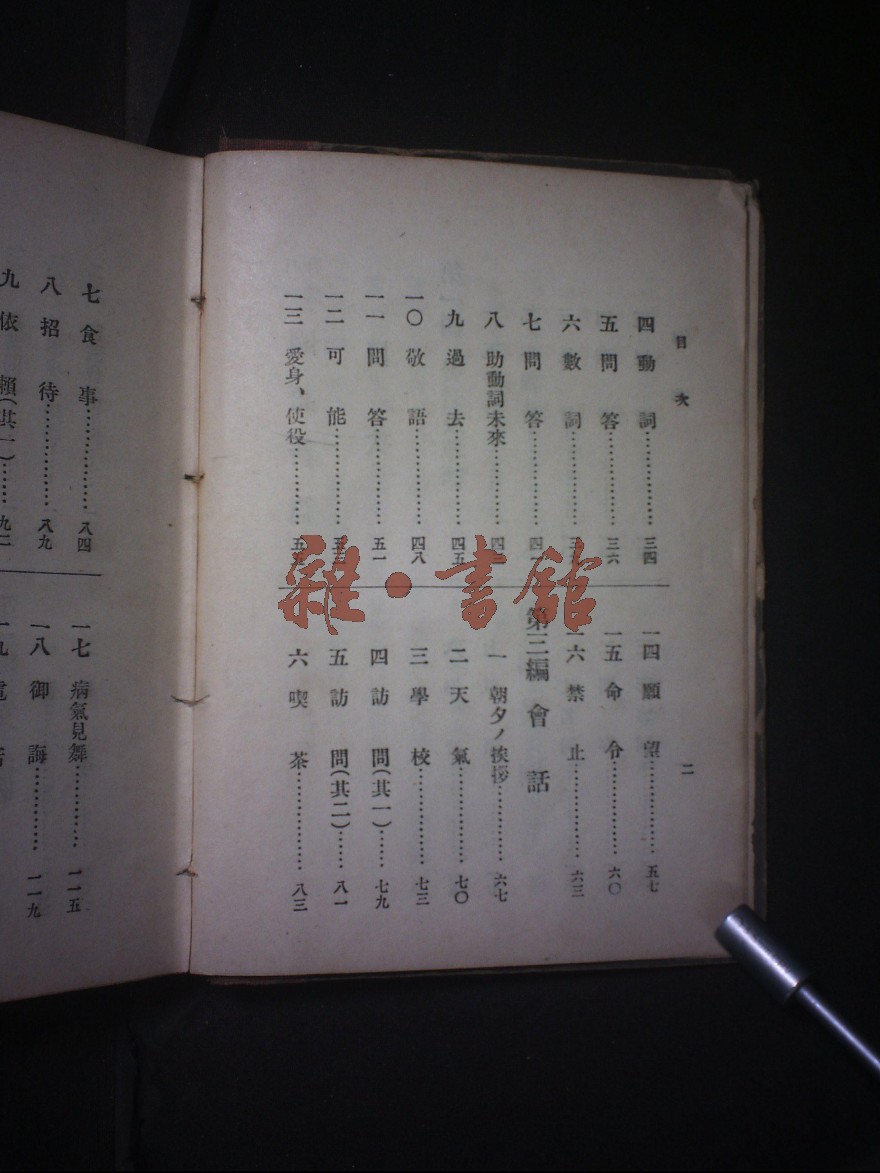 目次
四 動詞……………三四
五 問答……………三六
六 數詞……………三
七 問答……………四
八 助動詞未來…………四
九 過去……………四五
一〇 敬語……………四八
一一 問答……………五一
一二 可能……………五
一三 愛身、使役…………五
二
一四 願望……………五七
一五 命令……………六〇
一六 禁止……………六三
第三編 會話
一 朝夕ノ挨拶…………六七
二 天氣……………七〇
三 學校……………七三
四 訪問(其一)……七九
五 訪問(其二)……八一
六 喫茶……………八三
七 食事……………八四
八 招待……………八九
九 依賴(其一)……九二
一七 病氣見舞…………一一五
一八 御誨…………一一九
一九 電
雜·書館